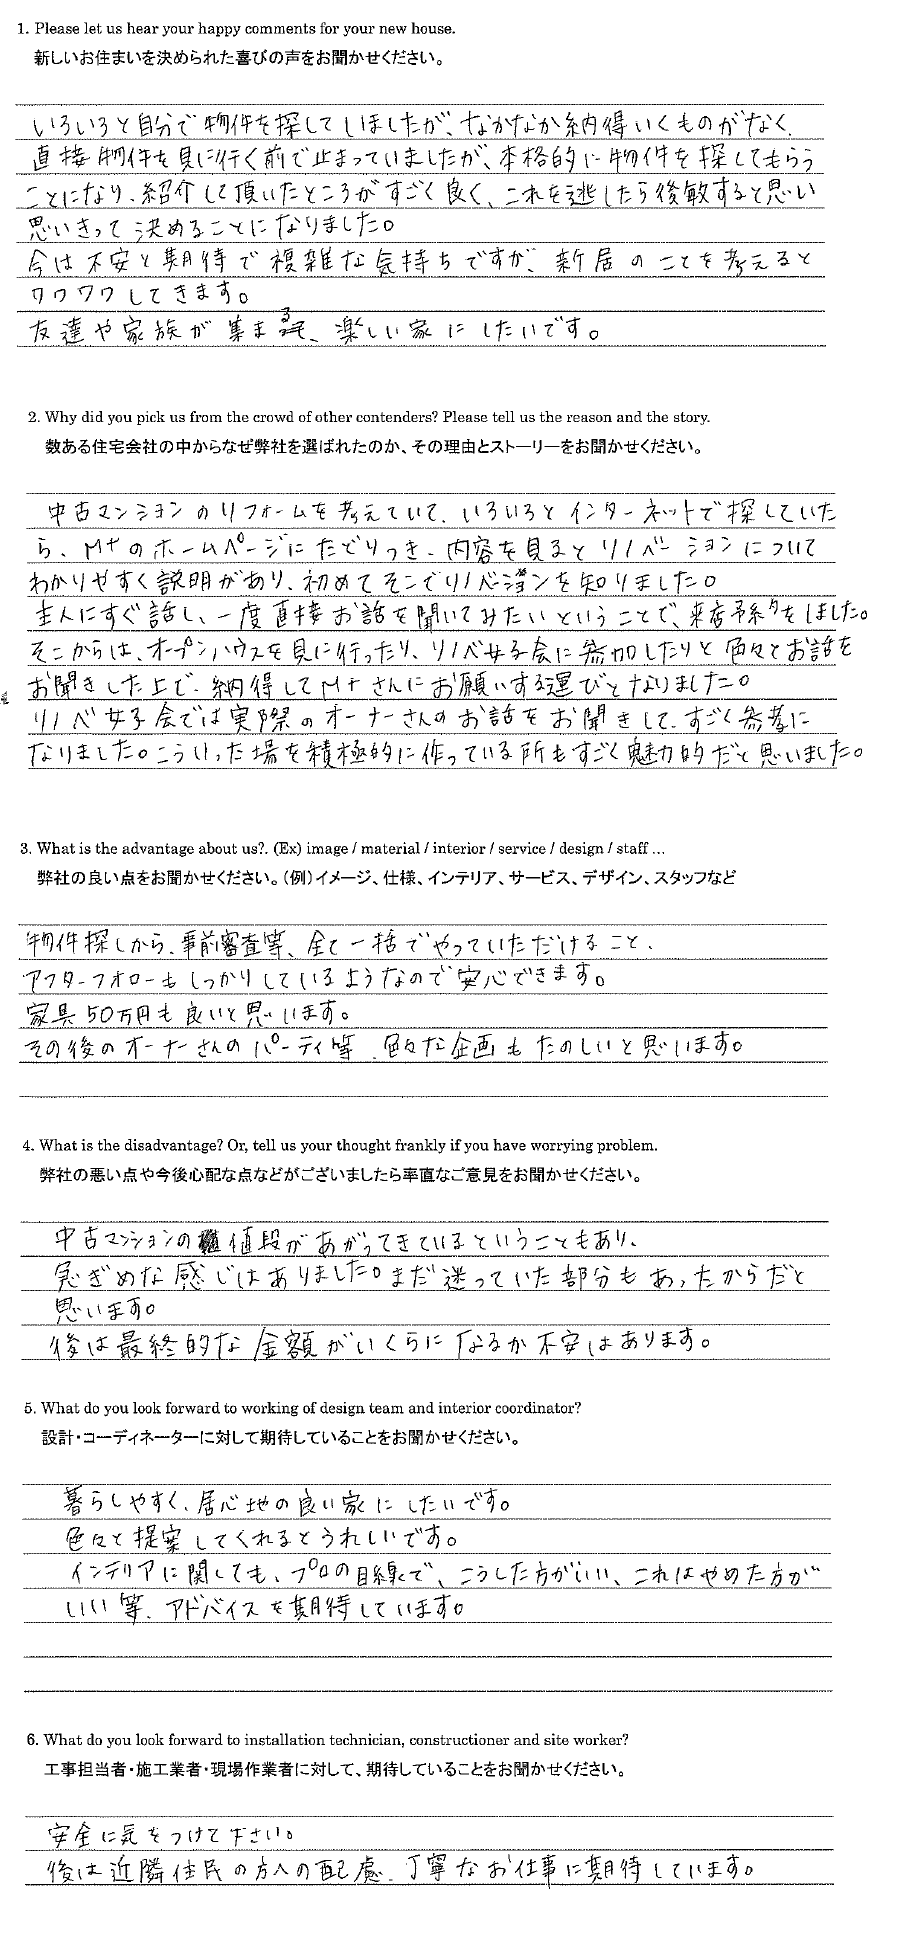 1. Please let us hear your happy comments for your new house.
新しいお住まいを決められた喜びの声をお聞かせください。
いろいろと自分で物件を探していましたが、なかなか納得いくものがなく、
直接物件を見に行く前で止まっていましたが、本格的に物件を探してもらう
ことになり、紹介して頂いたところがすごく良く、これを逃したら後敏すると思い
思いきって決めることになりました。
今は不安と期待で複雑な気持ちですが、新居のことを考えると
ワクワクしてきます。
友達や家族が集まる、楽しい家にしたいです。
2. Why did you pick us from the crowd of other contenders? Please tell us the reason and the story.
数ある住宅会社の中からなぜ弊社を選ばれたのか、その理由とストーリーをお聞かせください。
中古マンションのリフォームを考えていて、いろいろとインターネットで探していた
ら、M+のホームページにたどりつき、内容を見るとリノベーションについて
わかりやすく説明があり、初めてそこでリノベーションを知りました。
主人にすぐ話し、一度直接お話を聞いてみたいということで、来店予約をしました。
そこからは、オープンハウスを見に行ったり、リノベ女子会に参加したりと色々とお話を
お聞きした上で、納得してM+さんにお願いする運びとなりました。
リノベ女子会では実際のオーナーさんのお話をお聞きして、すごく参考に
なりました。こういった場を積極的に作っている所もすごく魅力的だと思いました。
3. What is the advantage about us?. (Ex) image / material / interior / service / design / staff ...
弊社の良い点をお聞かせください。（例）イメージ、仕様、インテリア、サービス、デザイン、スタッフなど
物件探しから、事前審査等、全て一括でやっていただけること、
アフターフォローもしっかりしているようなので安心できます。
家具50万円も良いと思います。
その後のオーナーさんのパーティ等、色々な企画もたのしいと思います。
4. What is the disadvantage? Or, tell us your thought frankly if you have worrying problem.
弊社の悪い点や今後心配な点などがございましたら率直なご意見をお聞かせください。
中古マンションの値段があがってきているということもあり、
急ぎめな感じはありました。まだ迷っていた部分もあったからだと
思います。
後は最終的な金額がいくらになるか不安はあります。
5. What do you look forward to working of design team and interior coordinator?
設計・コーディネーターに対して期待していることをお聞かせください。
暮らしやすく、居心地の良い家にしたいです。
色々と提案してくれるとうれしいです。
インテリアに関しても、プロの目線で、こうした方がいい、これはやめた方が
いい等、アドバイスを期待しています。
6. What do you look forward to installation technician, constructioner and site worker?
工事担当者・施工業者・現場作業者に対して、期待していることをお聞かせください。
安全に気をつけて下さい。
後は近隣住民の方への配慮、丁寧なお仕事に期待しています。